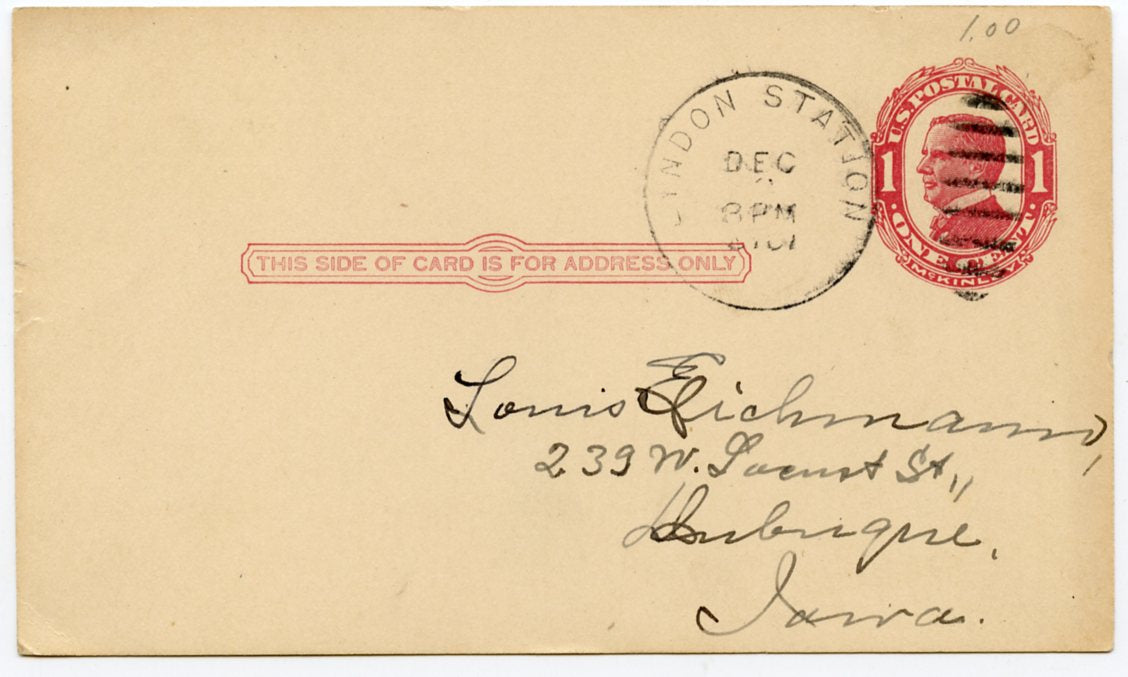 1.00
U.S. POSTAL CARD
1 1
· ONE CENT ·
McKINLEY
LYNDON STATION
DEC
PM
THIS SIDE OF CARD IS FOR ADDRESS ONLY
Louis Eichmann,
239 W. Locust St.,
Dubuque,
Iowa.